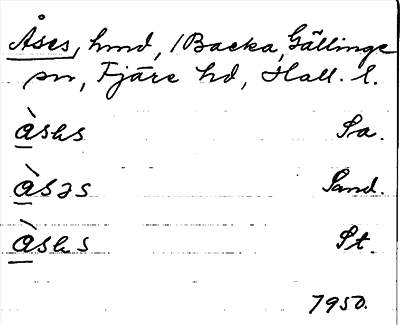 Åses, hmd, /Backa, Gällinge
sn, Fjäre hd, Hall. l.
àshs Sa.
àsəs Sand.
àshs St.
7950.